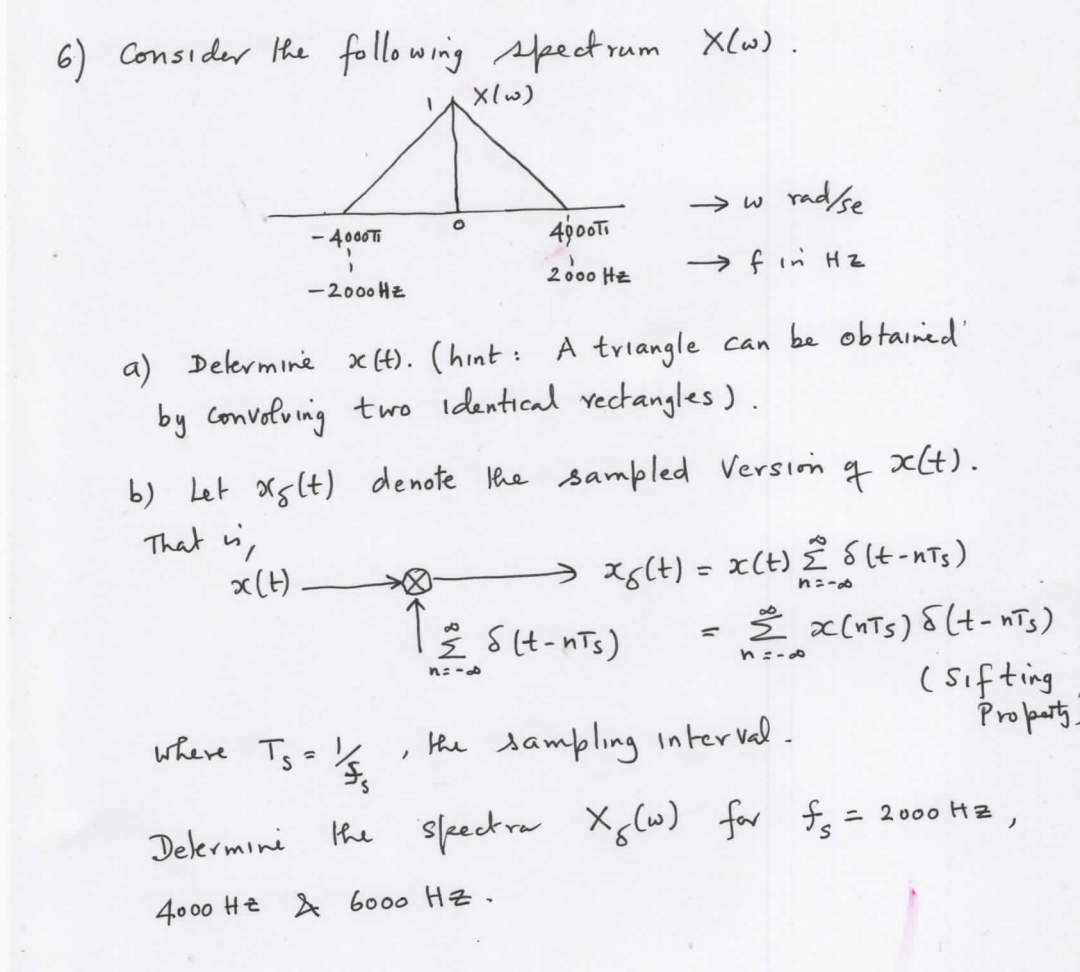 6) Consider the following spectrum X(ω).
1 X(ω)
→ ω rad/se
-4000π 0 4000π
→ f in Hz
-2000 Hz 2000 Hz
a) Determine x(t). (hint : A triangle can be obtained
by convolving two identical rectangles).
b) Let xδ(t) denote the sampled version of x(t).
That is,
x(t) → ⊗ → xδ(t) = x(t) ∞ Σ n=-∞ δ(t-nTs)
∞ Σ n=-∞ δ(t-nTs) = ∞ Σ n=-∞ x(nTs) δ(t-nTs)
(Sifting
Property
where Ts = 1/fs , the sampling interval.
Determine the spectra Xδ(ω) for fs = 2000 Hz,
4000 Hz & 6000 Hz.